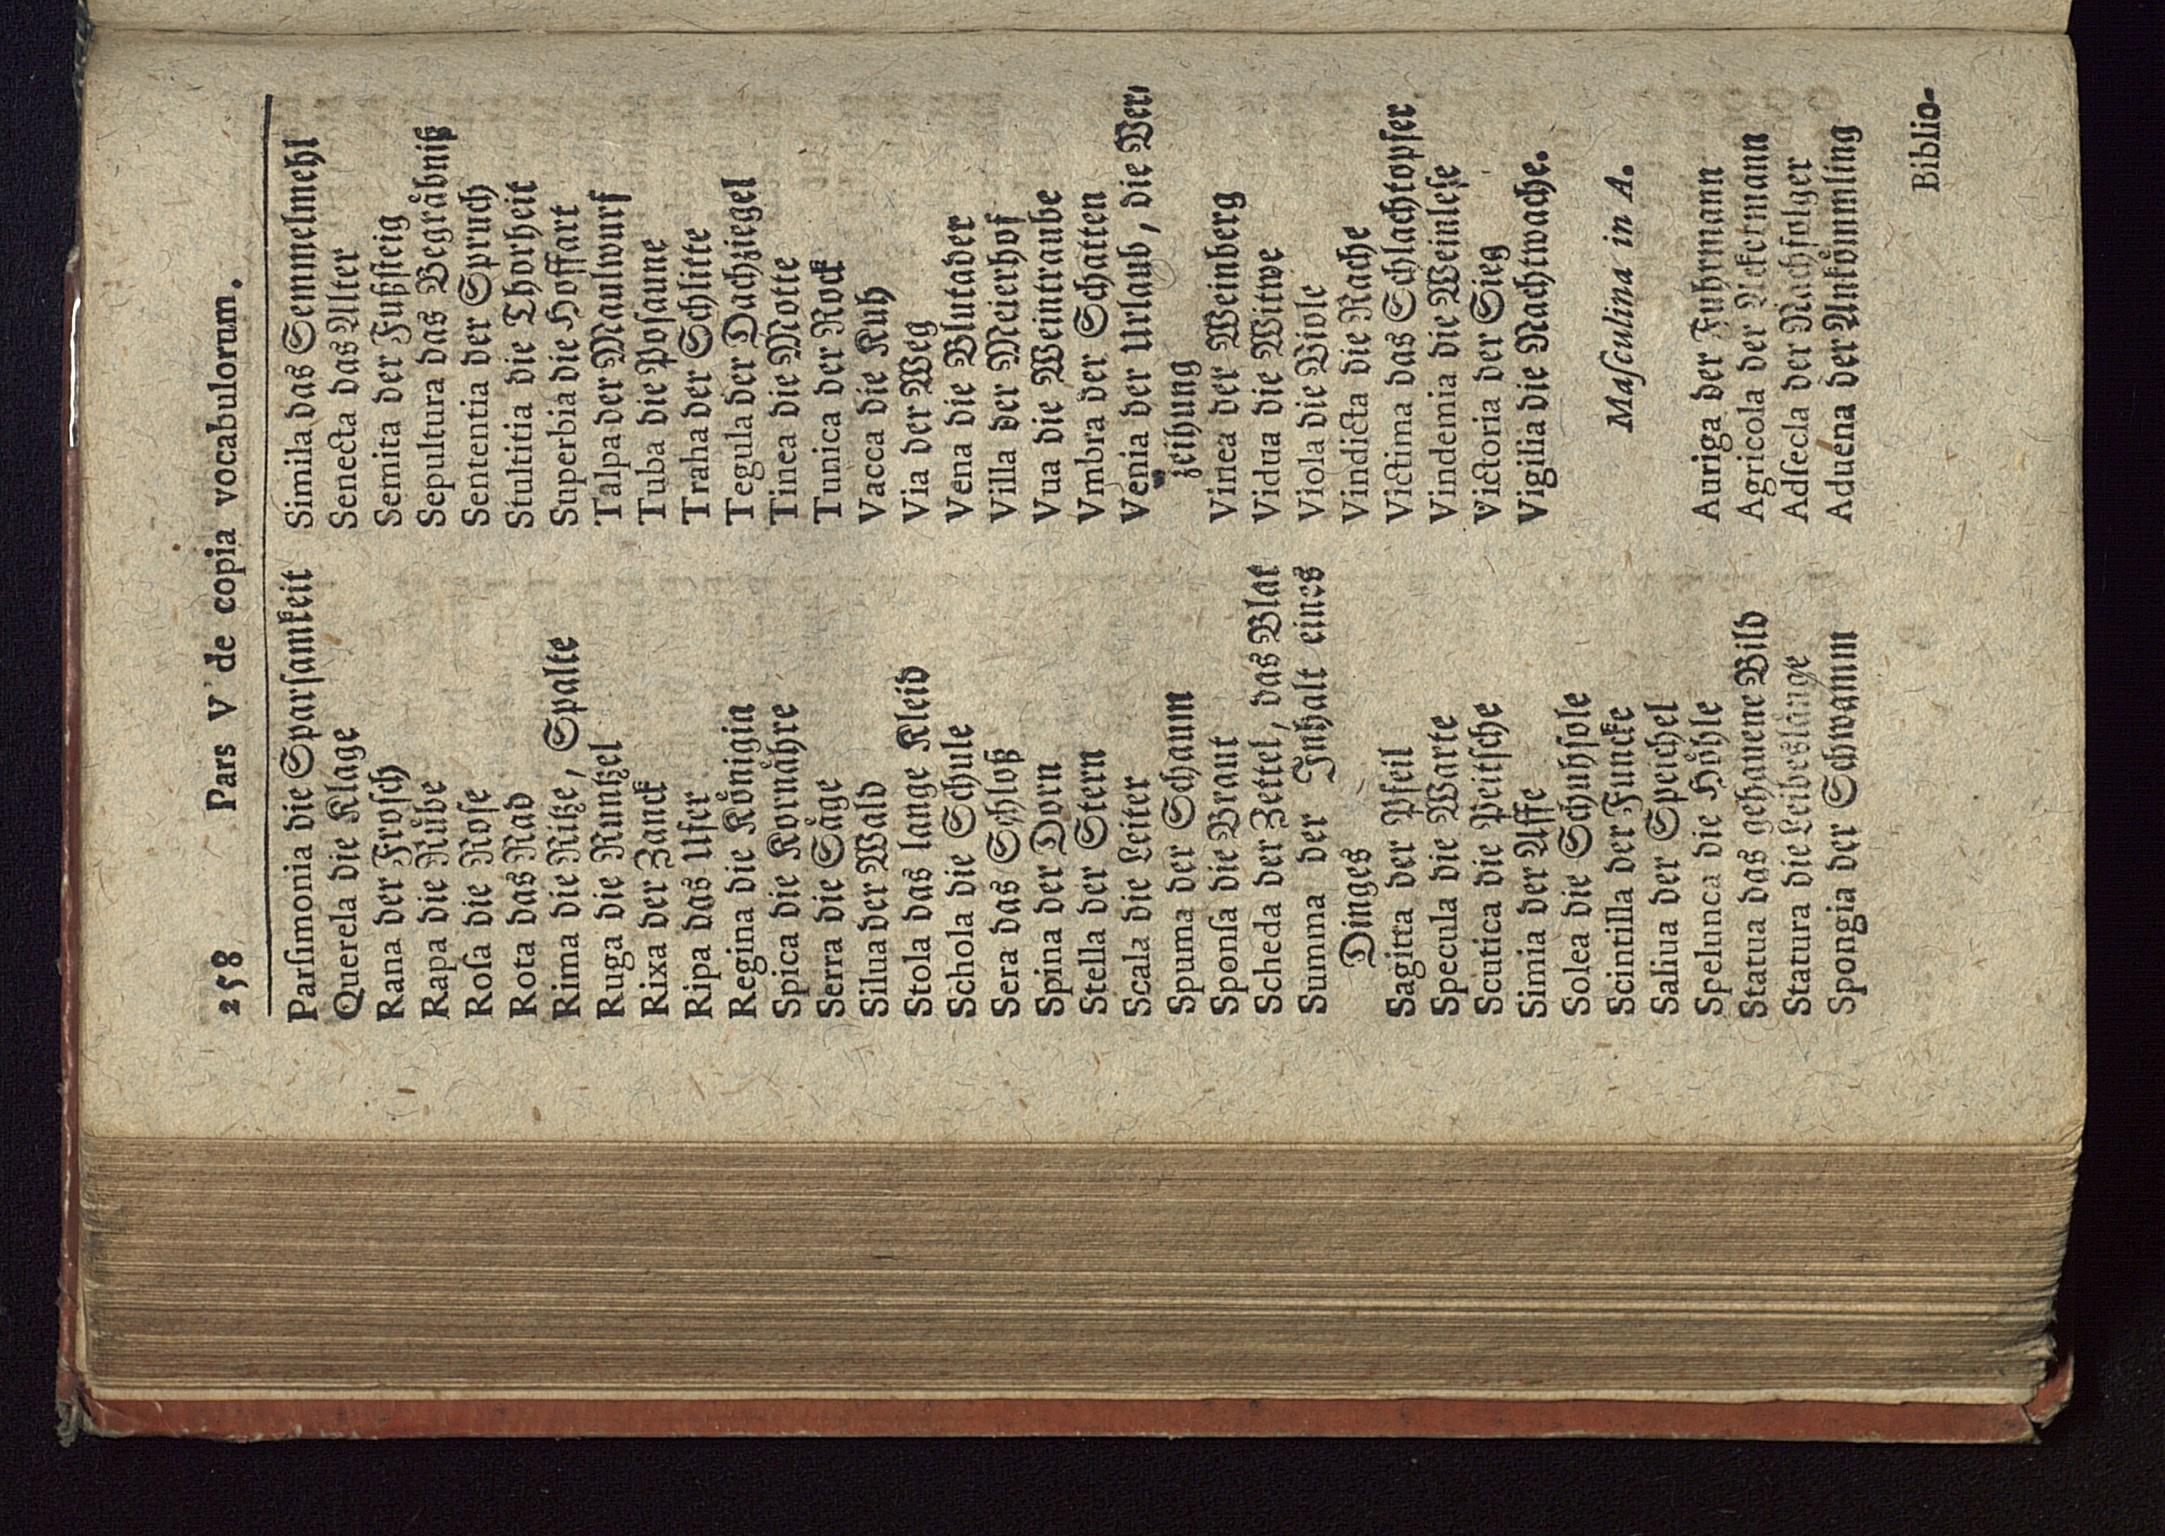 258 Pars V de copia vocabulorum.
Parſimonia die Sparſamkeit
Querela die Klage
Rana der Froſch
Rapa die Rübe
Roſa die Roſe
Rota das Rad
Rima die Ritze, Spalte
Ruga die Runtzel
Rixa der Zanck
Ripa das Ufer
Regina die Königin
Spica die Kornähre
Serra die Säge
Silua der Wald
Stola das lange Kleid
Schola die Schule
Sera das Schloß
Spina der Dorn
Stella der Stern
Scala die Leiter
Spuma der Schaum
Sponſa die Braut
Scheda der Zettel, das Blat
Summa der Inhalt eines
Dinges
Sagitta der Pfeil
Specula die Warte
Scutica die Peitſche
Simia der Affe
Solea die Schuhſole
Scintilla der Funcke
Saliua der Speichel
Spelunca die Höhle
Statua das gehauene Bild
Statura die Leibeslänge
Spongia der Schwamm
Simila das Semmelmehl
Senecta das Alter
Semita der Fußſteig
Sepultura das Begräbniß
Sententia der Spruch
Stultitia die Thorheit
Superbia die Hoffart
Talpa der Maulwurf
Tuba die Poſaune
Traha der Schlitte
Tegula der Dachziegel
Tinea die Motte
Tunica der Rock
Vacca die Kuh
Via der Weg
Vena die Blutader
Villa der Meierhof
Vua die Weintraube
Vmbra der Schatten
Venia der Urlaub, die Ver-
zeihung
Vinea der Weinberg
Vidua die Witwe
Viola die Viole
Vindicta die Rache
Victima das Schlachtopfer
Vindemia die Weinleſe
Victoria der Sieg
Vigilia die Nachtwache.
Maſculina in A.
Auriga der Fuhrmann
Agricola der Ackermann
Adſecla der Nachfolger
Aduena der Ankömmling
Biblio-